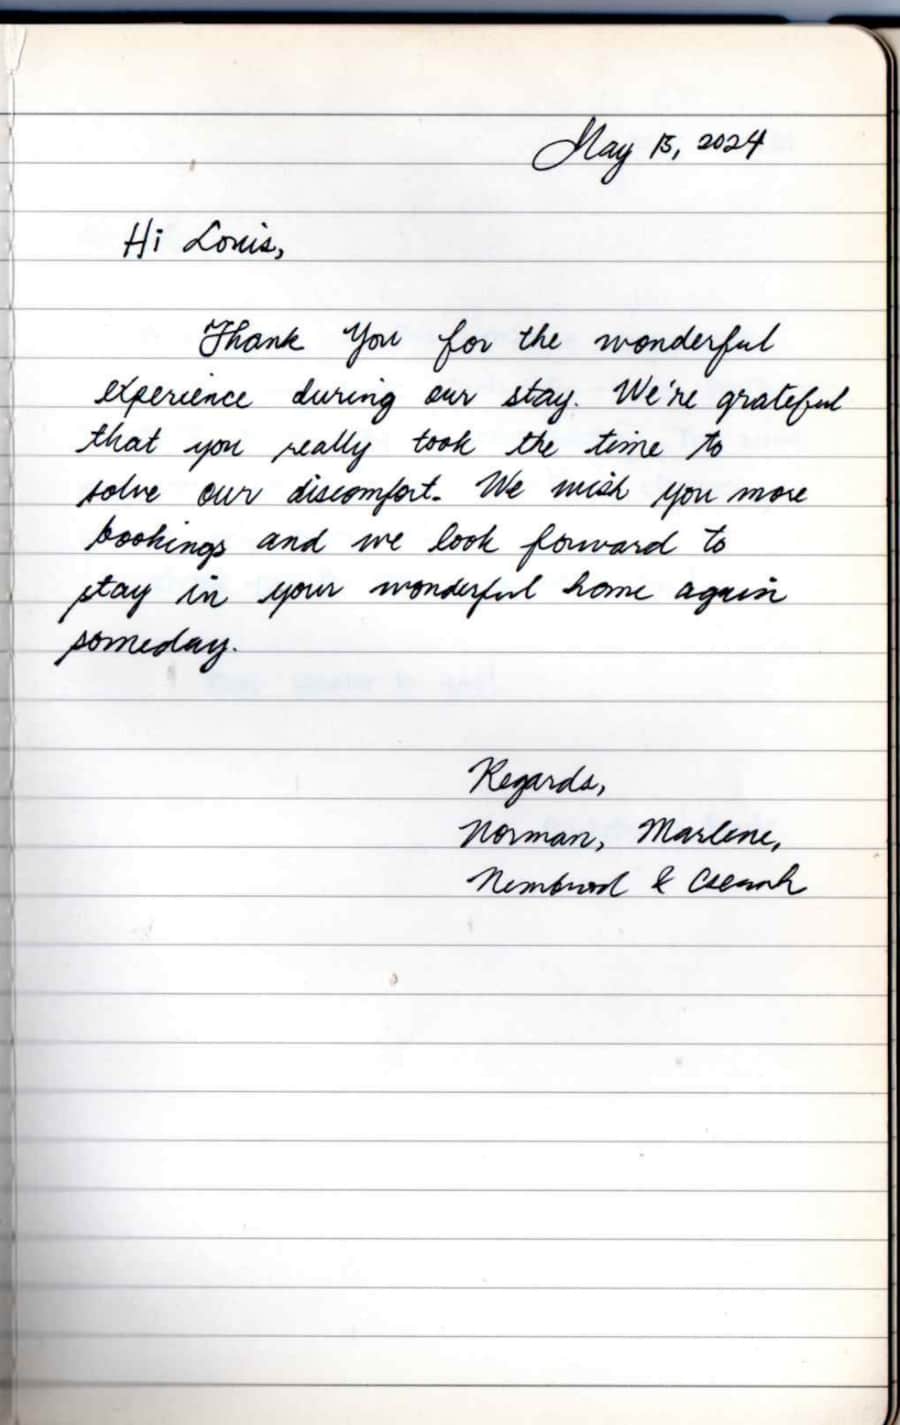 May 15, 2024
Hi Louis,
Thank You for the wonderful
experience during our stay. We're grateful
that you really took the time to
solve our discomfort. We wish you more
bookings and we look forward to
stay in your wonderful home again
someday.
Regards,
Norman, Marlene,
&